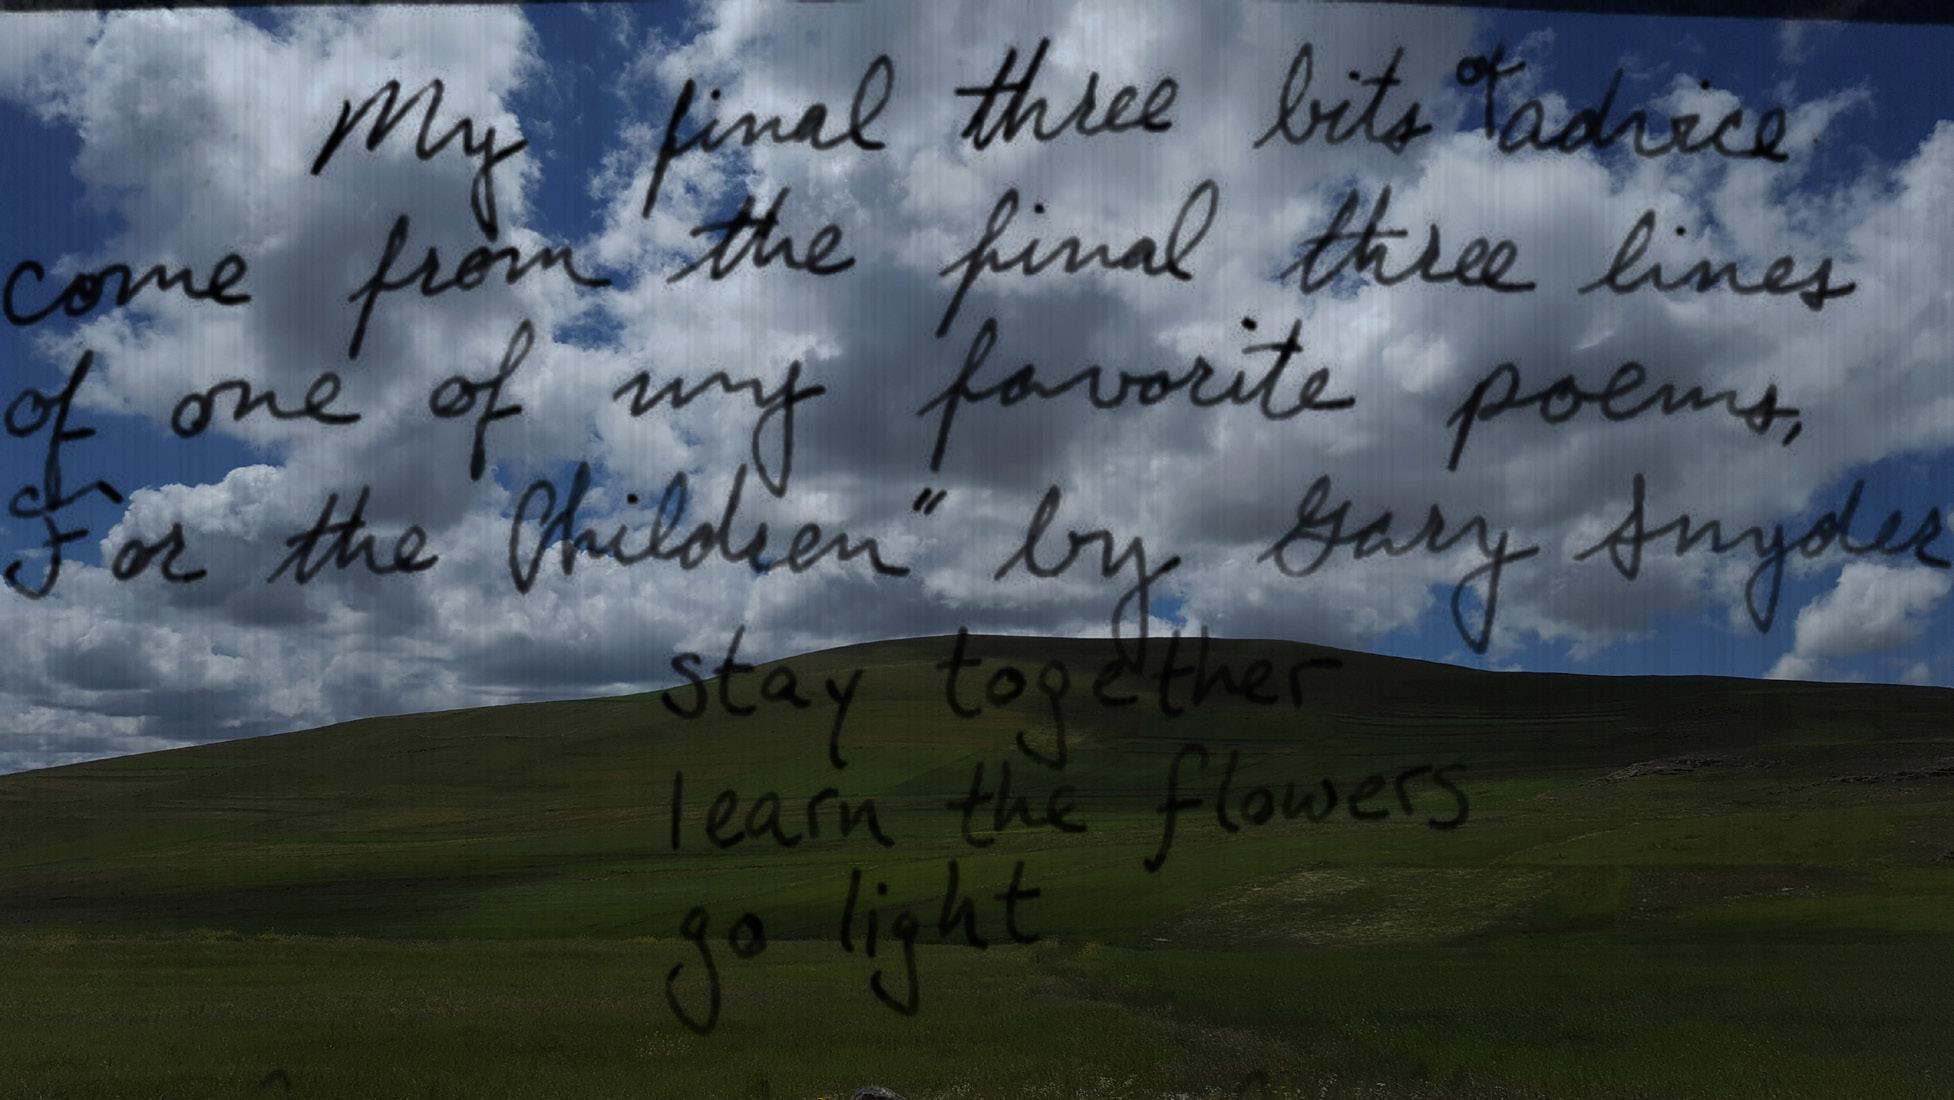 My final three bits of advice
come from the final three lines
of one of my favorite poems,
For the Children" by Gary Snyder
stay together
learn the flowers
go light